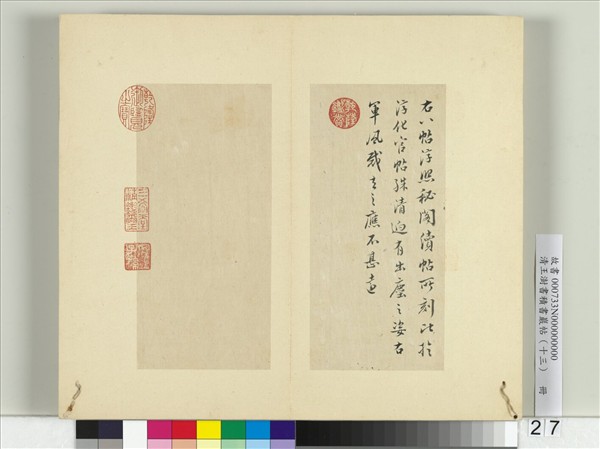 右八帖淳熙秘閣續帖所刻比於
淳化官帖殊清迥有出塵之姿右
軍風裁去之應不甚遠
故書 000733N000000000
清王澍書積書巖帖（十三） 冊
27